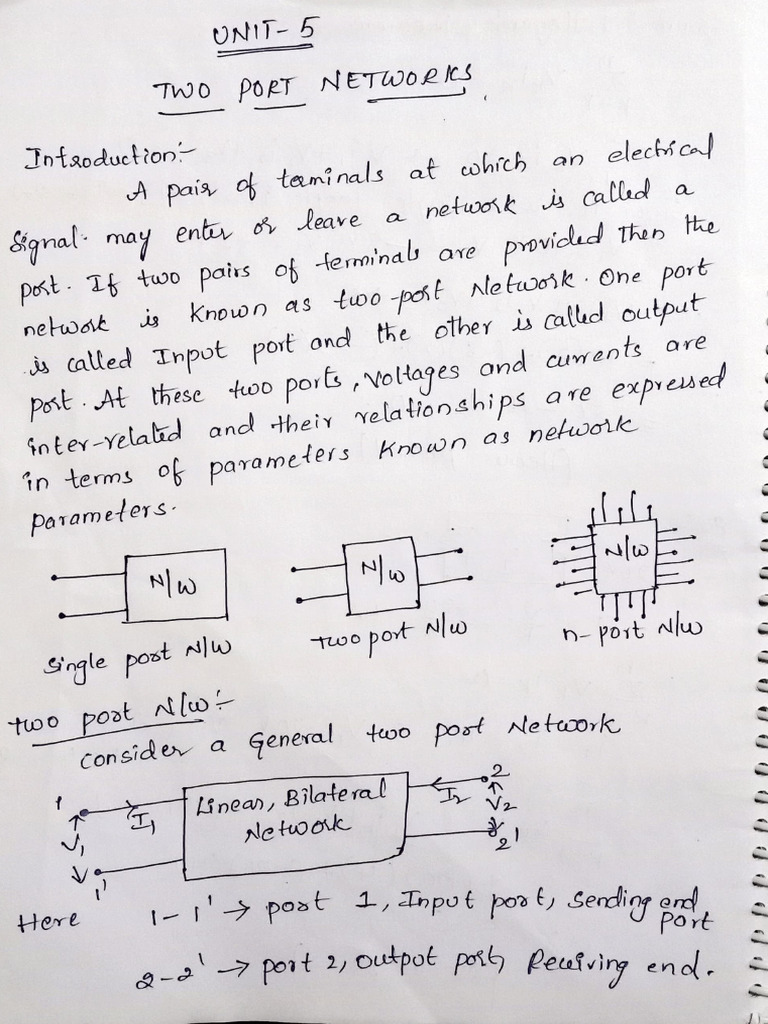 UNIT-5
TWO PORT NETWORKS.
Introduction:-
A pair of terminals at which an electrical
Signal may enter or leave a network is called a
port. If two pairs of terminals are provided then the
network is known as two-port Network. One port
is called Input port and the other is called output
port. At these two ports, voltages and currents are
inter-related and their relationships are expressed
in terms of parameters known as network
parameters.
N/W N/W N/W
Single port N/W two port N/W n-port N/W
two port N/W:-
Consider a General two port Network
1 I1 Linear, Bilateral I2 2
V1 Network V2
1' 2'
Here 1-1' → port 1, Input port, Sending end
port
2-2' → port 2, output port, Receiving end.